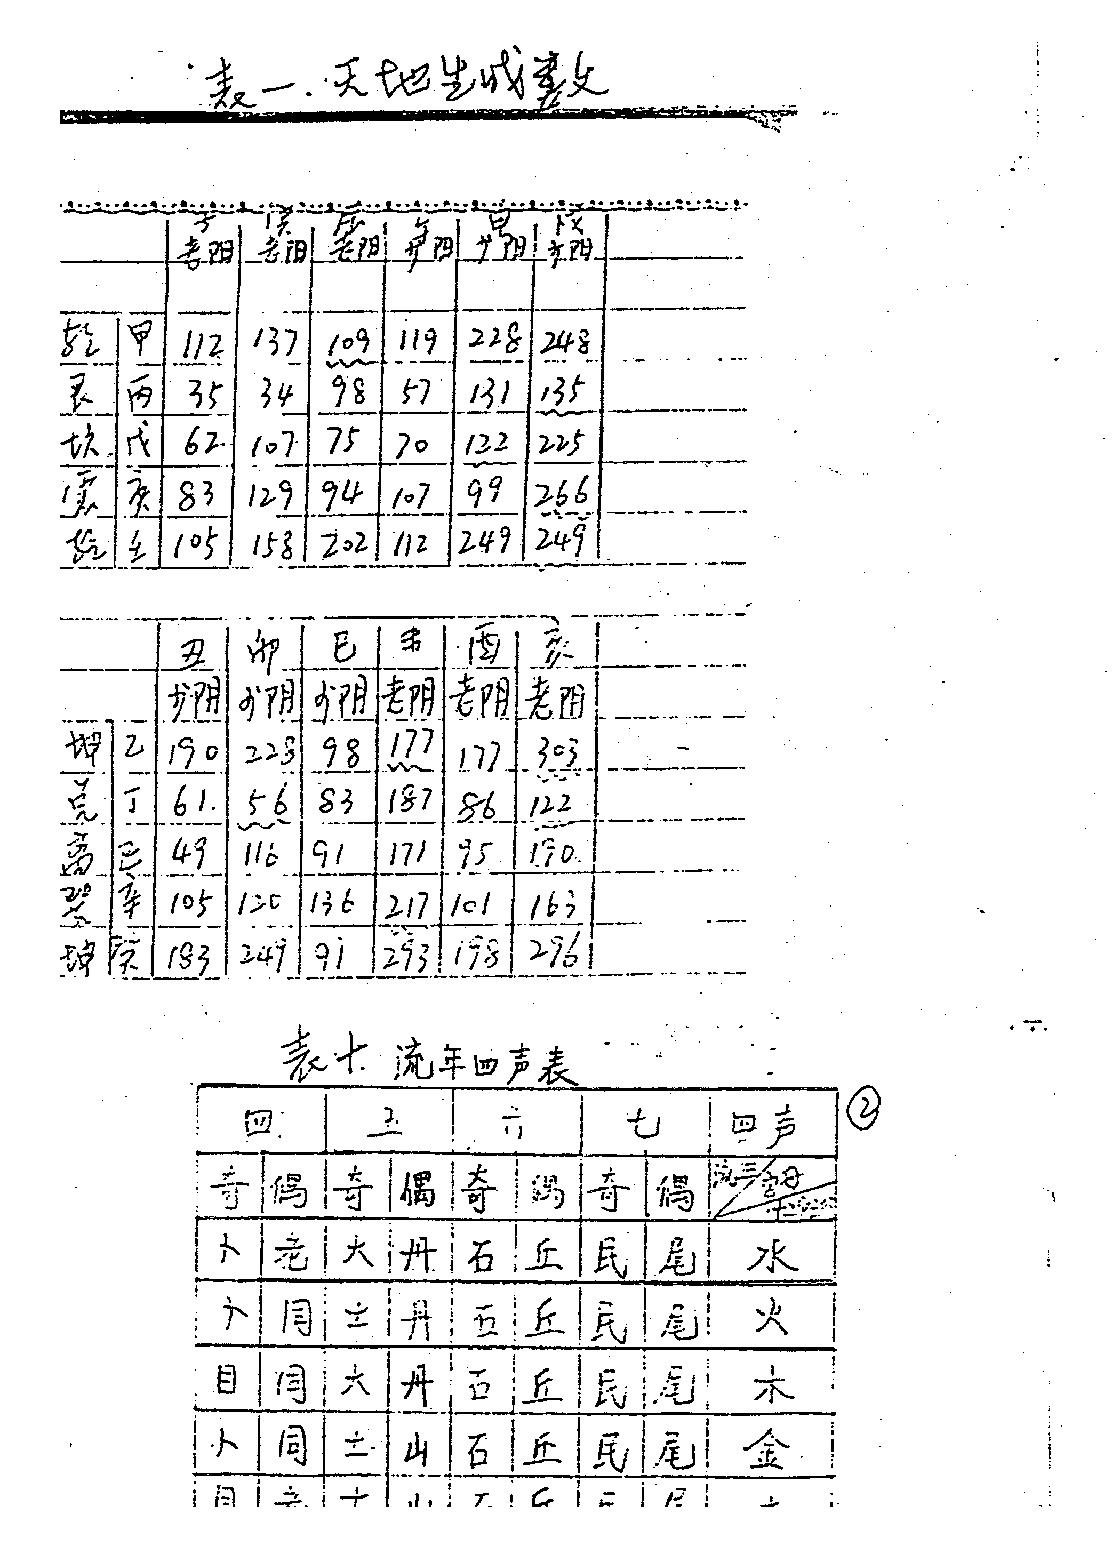 表一.天地生成数
子 寅 辰 午 申 戌
老阴 老阳 老阳 少阴 少阴 少阳
乾 甲 112 137 109 119 228 248
艮 丙 35 34 98 57 131 135
坎 戊 62 107 75 70 122 225
震 庚 83 129 94 107 99 266
乾 壬 105 158 202 112 249 249
丑 卯 巳 未 酉 亥
少阴 少阴 少阴 老阴 老阴 老阴
坤 乙 190 228 98 177 177 303
兑 丁 61 56 83 187 86 122
离 己 49 116 91 171 95 190
巽 辛 105 120 136 217 101 163
坤 癸 183 249 91 293 198 296
表十.流年四声表
②
四 五 六 七 四声
奇 偶 奇 偶 奇 偶 奇 偶
卜 老 大 丹 石 丘 民 尾 水
卜 同 土 丹 石 丘 民 尾 火
目 同 大 丹 石 丘 民 尾 木
卜 同 土 山 石 丘 民 尾 金